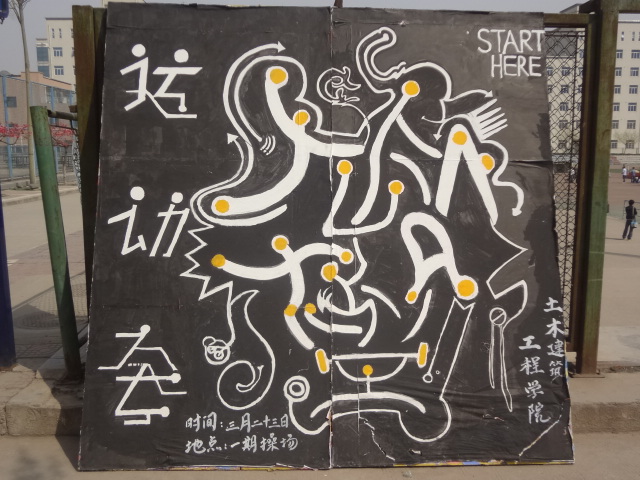 START
HERE
运动会
土木建筑
工程学院
时间:三月二十三日
地点:一期操场